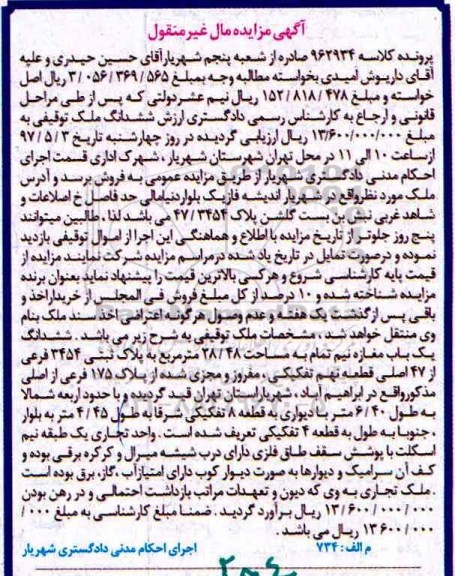 آگهی مزایده مال غیر منقول
پرونده کلاسه ۹۶۲۹۳۴ صادره از شعبه پنجم شهریار آقای حسین حیدری و علیه
آقای داریوش امیدی بخواسته مطالبه وجه بمبلغ ۵۶۵ / ۳۶۹ / ۰۵۶ / ۳ ریال اصل
خواسته و مبلغ ۴۷۸ / ۸۱۸ / ۱۵۲ ریال نیم عشر دولتی که پس از طی مراحل
قانونی و ارجاع به کارشناس رسمی دادگستری ارزش ششدانگ ملک توقیفی به
مبلغ ۱۳/۶۰۰/۰۰۰/۰۰۰ ریال ارزیابی گردیده در روز چهارشنبه تاریخ ۳ / ۵ / ۹۷
از ساعت ۱۰ الی ۱۱ در محل تهران شهرستان شهریار ، شهرک اداری قسمت اجرای
احکام مدنی دادگستری شهریار از طریق مزایده عمومی به فروش برسد و آدرس
ملک مورد نظر واقع در شهریار اندیشه فاز یک بلوار دنیامالی حد فاصل خ اصلاعات و
شاهد غربی نبش بن بست گلشن پلاک ۳۴۵۴ / ۴۷ می باشد لذا . طالبین میتوانند
پنج روز جلوتر از تاریخ مزایده با اطلاع و هماهنگی این اجرا از اموال توقیفی بازدید
نموده و درصورت تمایل در تاریخ یاد شده در مراسم مزایده شرکت نمایند مزایده از
قیمت پایه کارشناسی شروع و هر کس بالاترین قیمت را پیشنهاد نماید بعنوان برنده
مزایده شناخته شده و ۱۰ درصد از کل مبلغ فروش فی المجلس از خریدار اخذ و
باقی پس از گذشت یک هفته و عدم وصول هر گونه اعتراضی اخذ سند ملک بنام
وی منتقل خواهد شد . مشخصات ملک توقیفی به شرح زیر می باشد . ششدانگ
یک باب مغازه نیم تمام به مساحت ۲۸ / ۴۸ مترمربع به پلاک ثبتی ۳۴۵۴ فرعی
از ۴۷ اصلی قطعه نهم تفکیکی ، مفروز و مجزی شده از پلاک ۱۷۵ فرعی از اصلی
مذکور واقع در ابراهیم آباد ، شهریار استان تهران قید گردیده و با حدود اربعه شمالا
به طول ۴۰ / ۶ متر با دیواری به قطعه ۸ تفکیکی شرقا به طول ۴۵ / ۴ متر به بلوار
، جنوبا به طول به قطعه ۴ تفکیکی تعریف شده است . واحد تجاری یک طبقه نیم
اسکلت با پوشش سقف طاق فلزی دارای درب شیشه میرال و کرکره برقی بوده و
کف آن سرامیک و دیوارها به صورت دیوار کوب دارای امتیاز آب ، گاز ، برق بوده است
. ملک تجاری به وی که دیون و تعهدات مراتب بازداشت احتمالی و در رهن بودن
۰۰۰ / ۰۰۰ / ۱۳/۶۰۰ ریال برآورد گردید . ضمنا مبلغ کارشناسی به مبلغ ۰۰۰ /
۰۰۰ / ۱۳۶۰۰ ریال می باشد .
م الف : ۷۳۴ اجرای احکام مدنی دادگستری شهریار